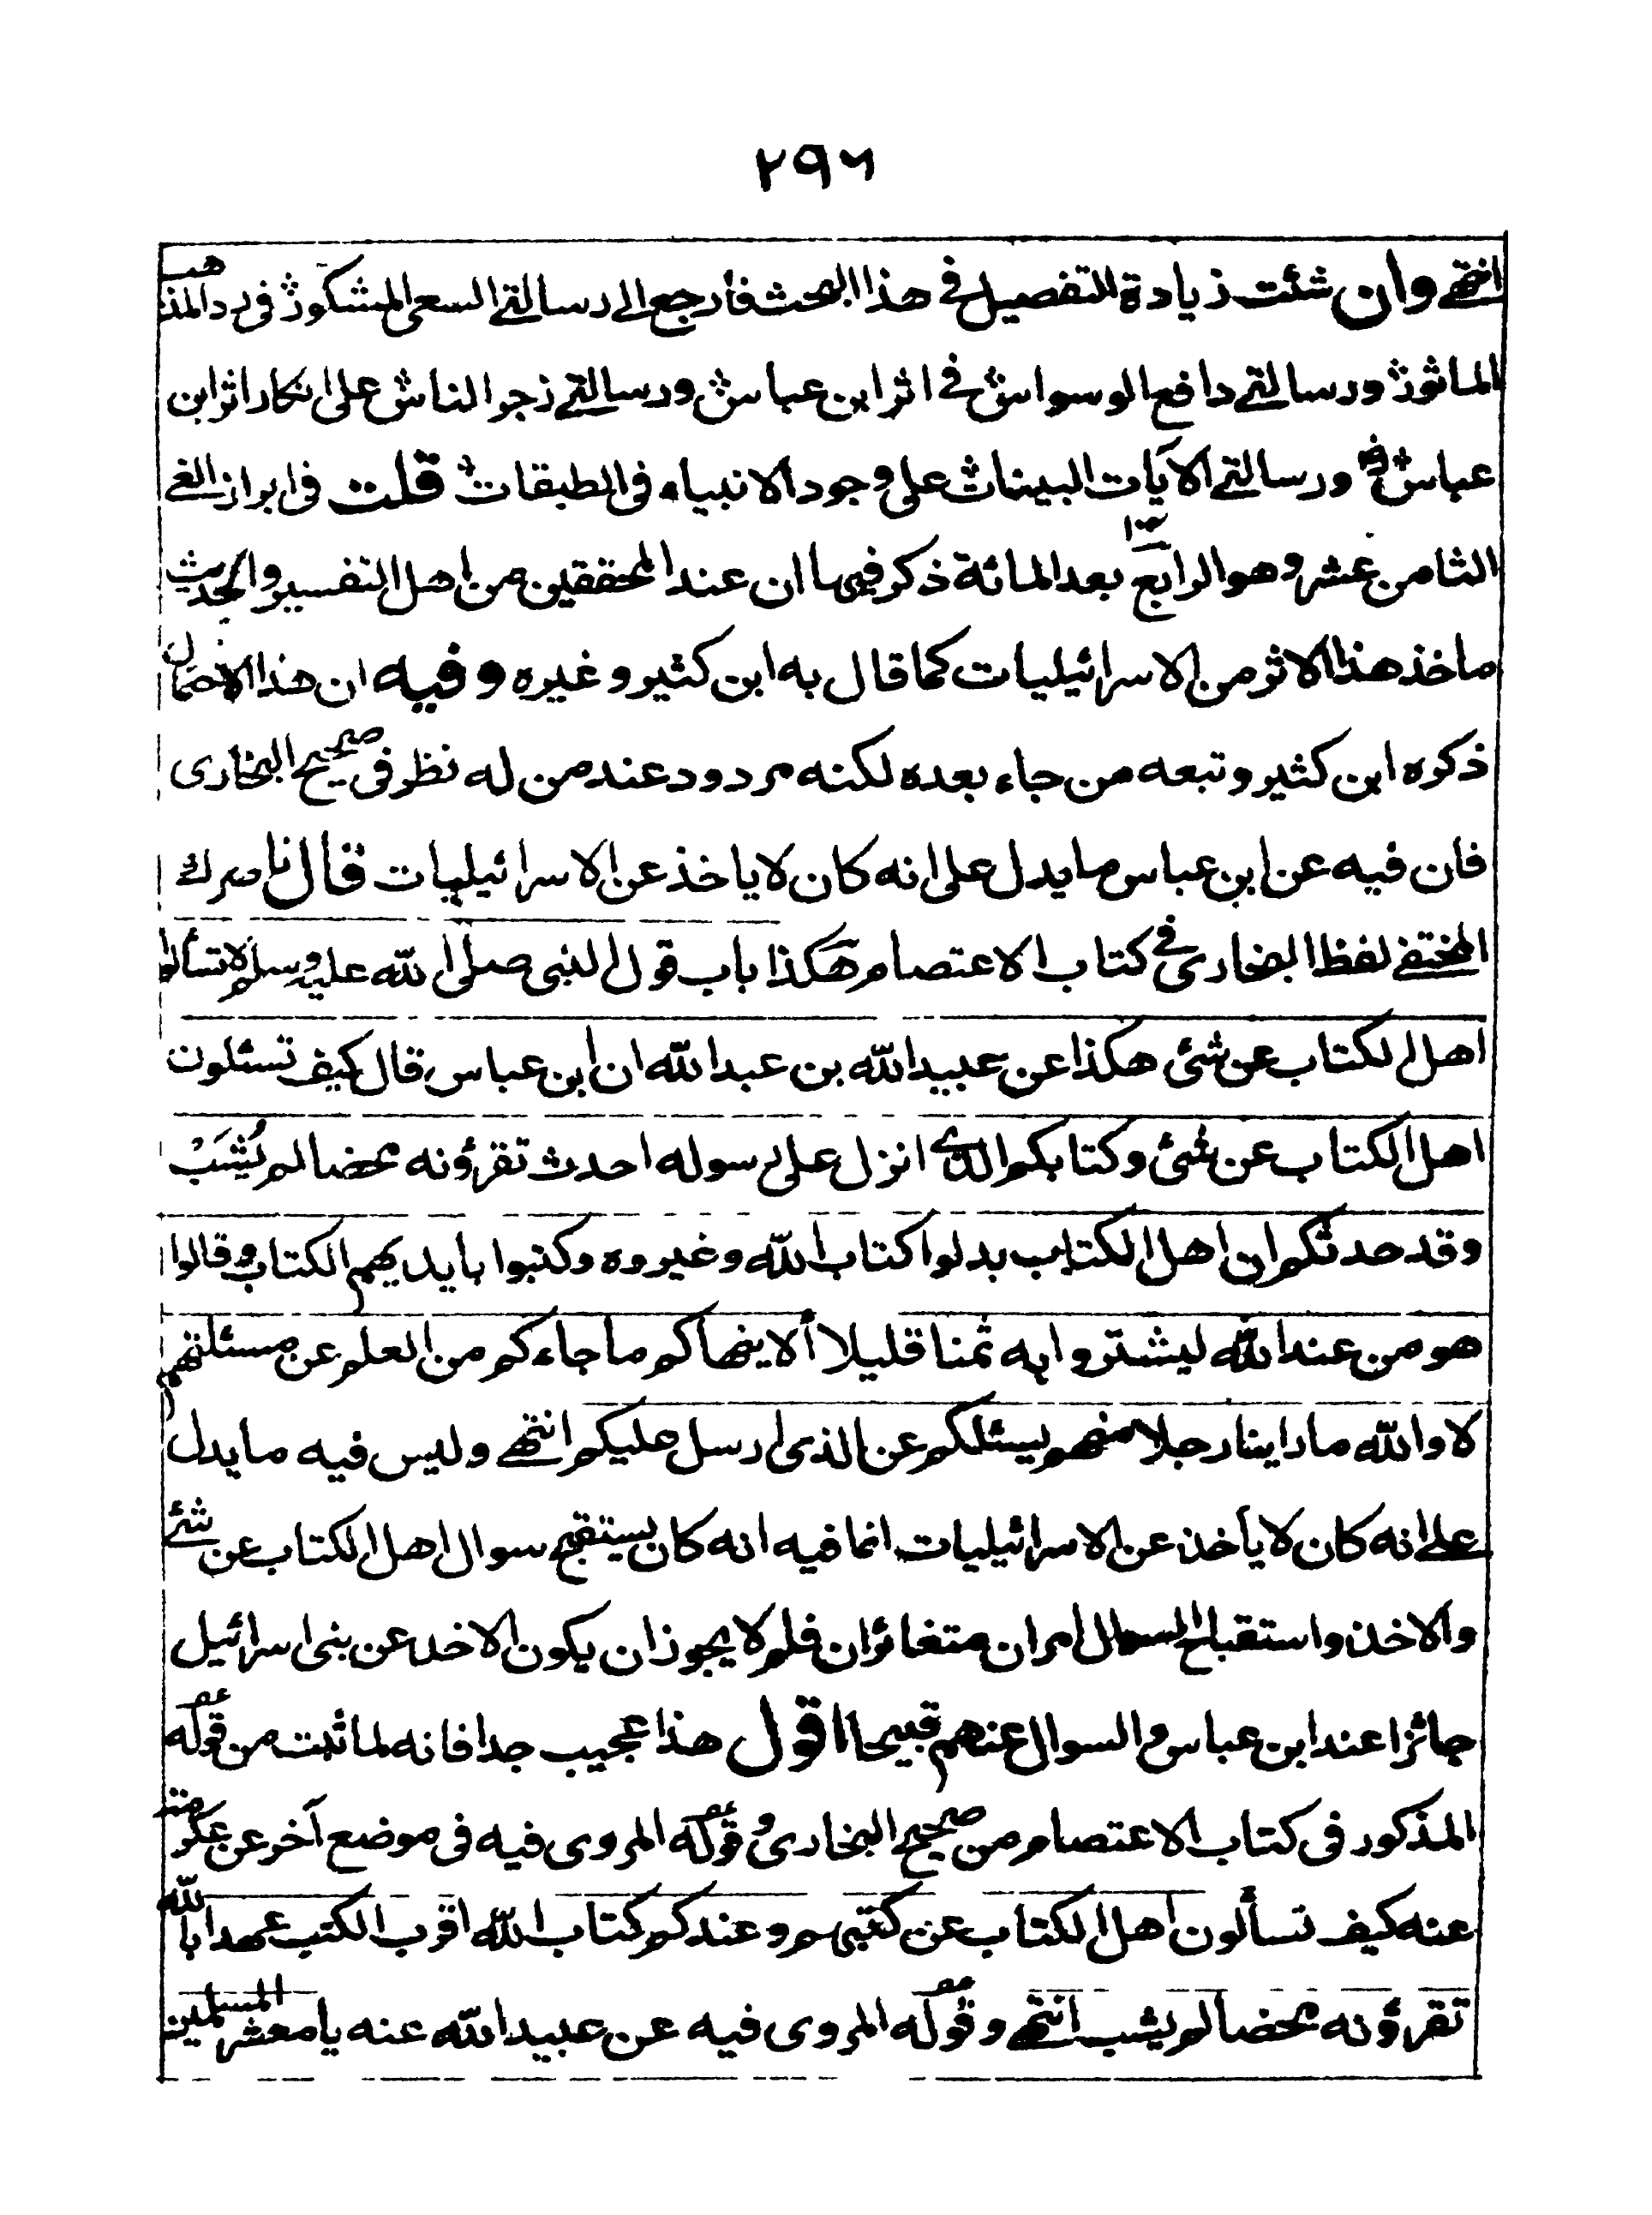 ٢٩٦
انتهى وان شئت زيادة التفصيل فى هذا البحث فارجع الى رسالتى السعى المشكور فى رد المذهب
الماثور ورسالتى دافع الوسواس فى اثر ابن عباس ورسالتى زجر الناس على انكار اثر ابن
عباس ورسالتى الآيات البينات على وجود الانبياء فى الطبقات قلت فى ابراز الغى
الثامن عشر وهو الرابع بعد المائة ذكر فيها ان عند المحققين من اهل التفسير والحديث
ماخذ هذا الاثر من الاسرائيليات كما قال به ابن كثير وغيره وفيه ان هذا الاحتمال
ذكره ابن كثير وتبعه من جاء بعده لكنه مردود عند من له نظر فى صحيح البخارى
فان فيه عن ابن عباس ما يدل على انه كان لا ياخذ عن الاسرائيليات قال ناصرك
المختفى لفظ البخارى فى كتاب الاعتصام هكذا باب قول النبى صلى الله عليه وسلم لا تسألوا
اهل الكتاب عن شئ هكذا عن عبيد الله بن عبد الله ان ابن عباس قال كيف تسئلون
اهل الكتاب عن شئ وكتابكم الذى انزل على رسوله احدث تقرؤنه محضا لم يُشَبْ
وقد حدثكم ان اهل الكتاب بدلوا كتاب الله وغيروه وكتبوا بايديهم الكتاب وقالوا
هو من عند الله ليشتروا به ثمنا قليلا ألا ينهاكم ما جاءكم من العلم عن مسئلتهم
لا والله ما راينا رجلا منهم يسئلكم عن الذى ارسل عليكم انتهى وليس فيه ما يدل
على انه كان لا يأخذ عن الاسرائيليات انما فيه انه كان يستقبح سوال اهل الكتاب عن شئ
والاخذ واستقباح السوال امران متغائران فلم لا يجوز ان يكون الاخذ عن بنى اسرائيل
جائزا عند ابن عباس والسوال عنهم قبيحا اقول هذا عجيب جدا فانه لما ثبت من قوله
المذكور فى كتاب الاعتصام من صحيح البخارى وقوله المروى فيه فى موضع آخر عن عكرمة
عنه كيف تسألون اهل الكتاب عن كتبهم وعندكم كتاب الله اقرب الكتب عهدا بالله
تقرؤنه محضا لم يشب انتهى وقوله المروى فيه عن عبيد الله عنه يا معشر المسلمين